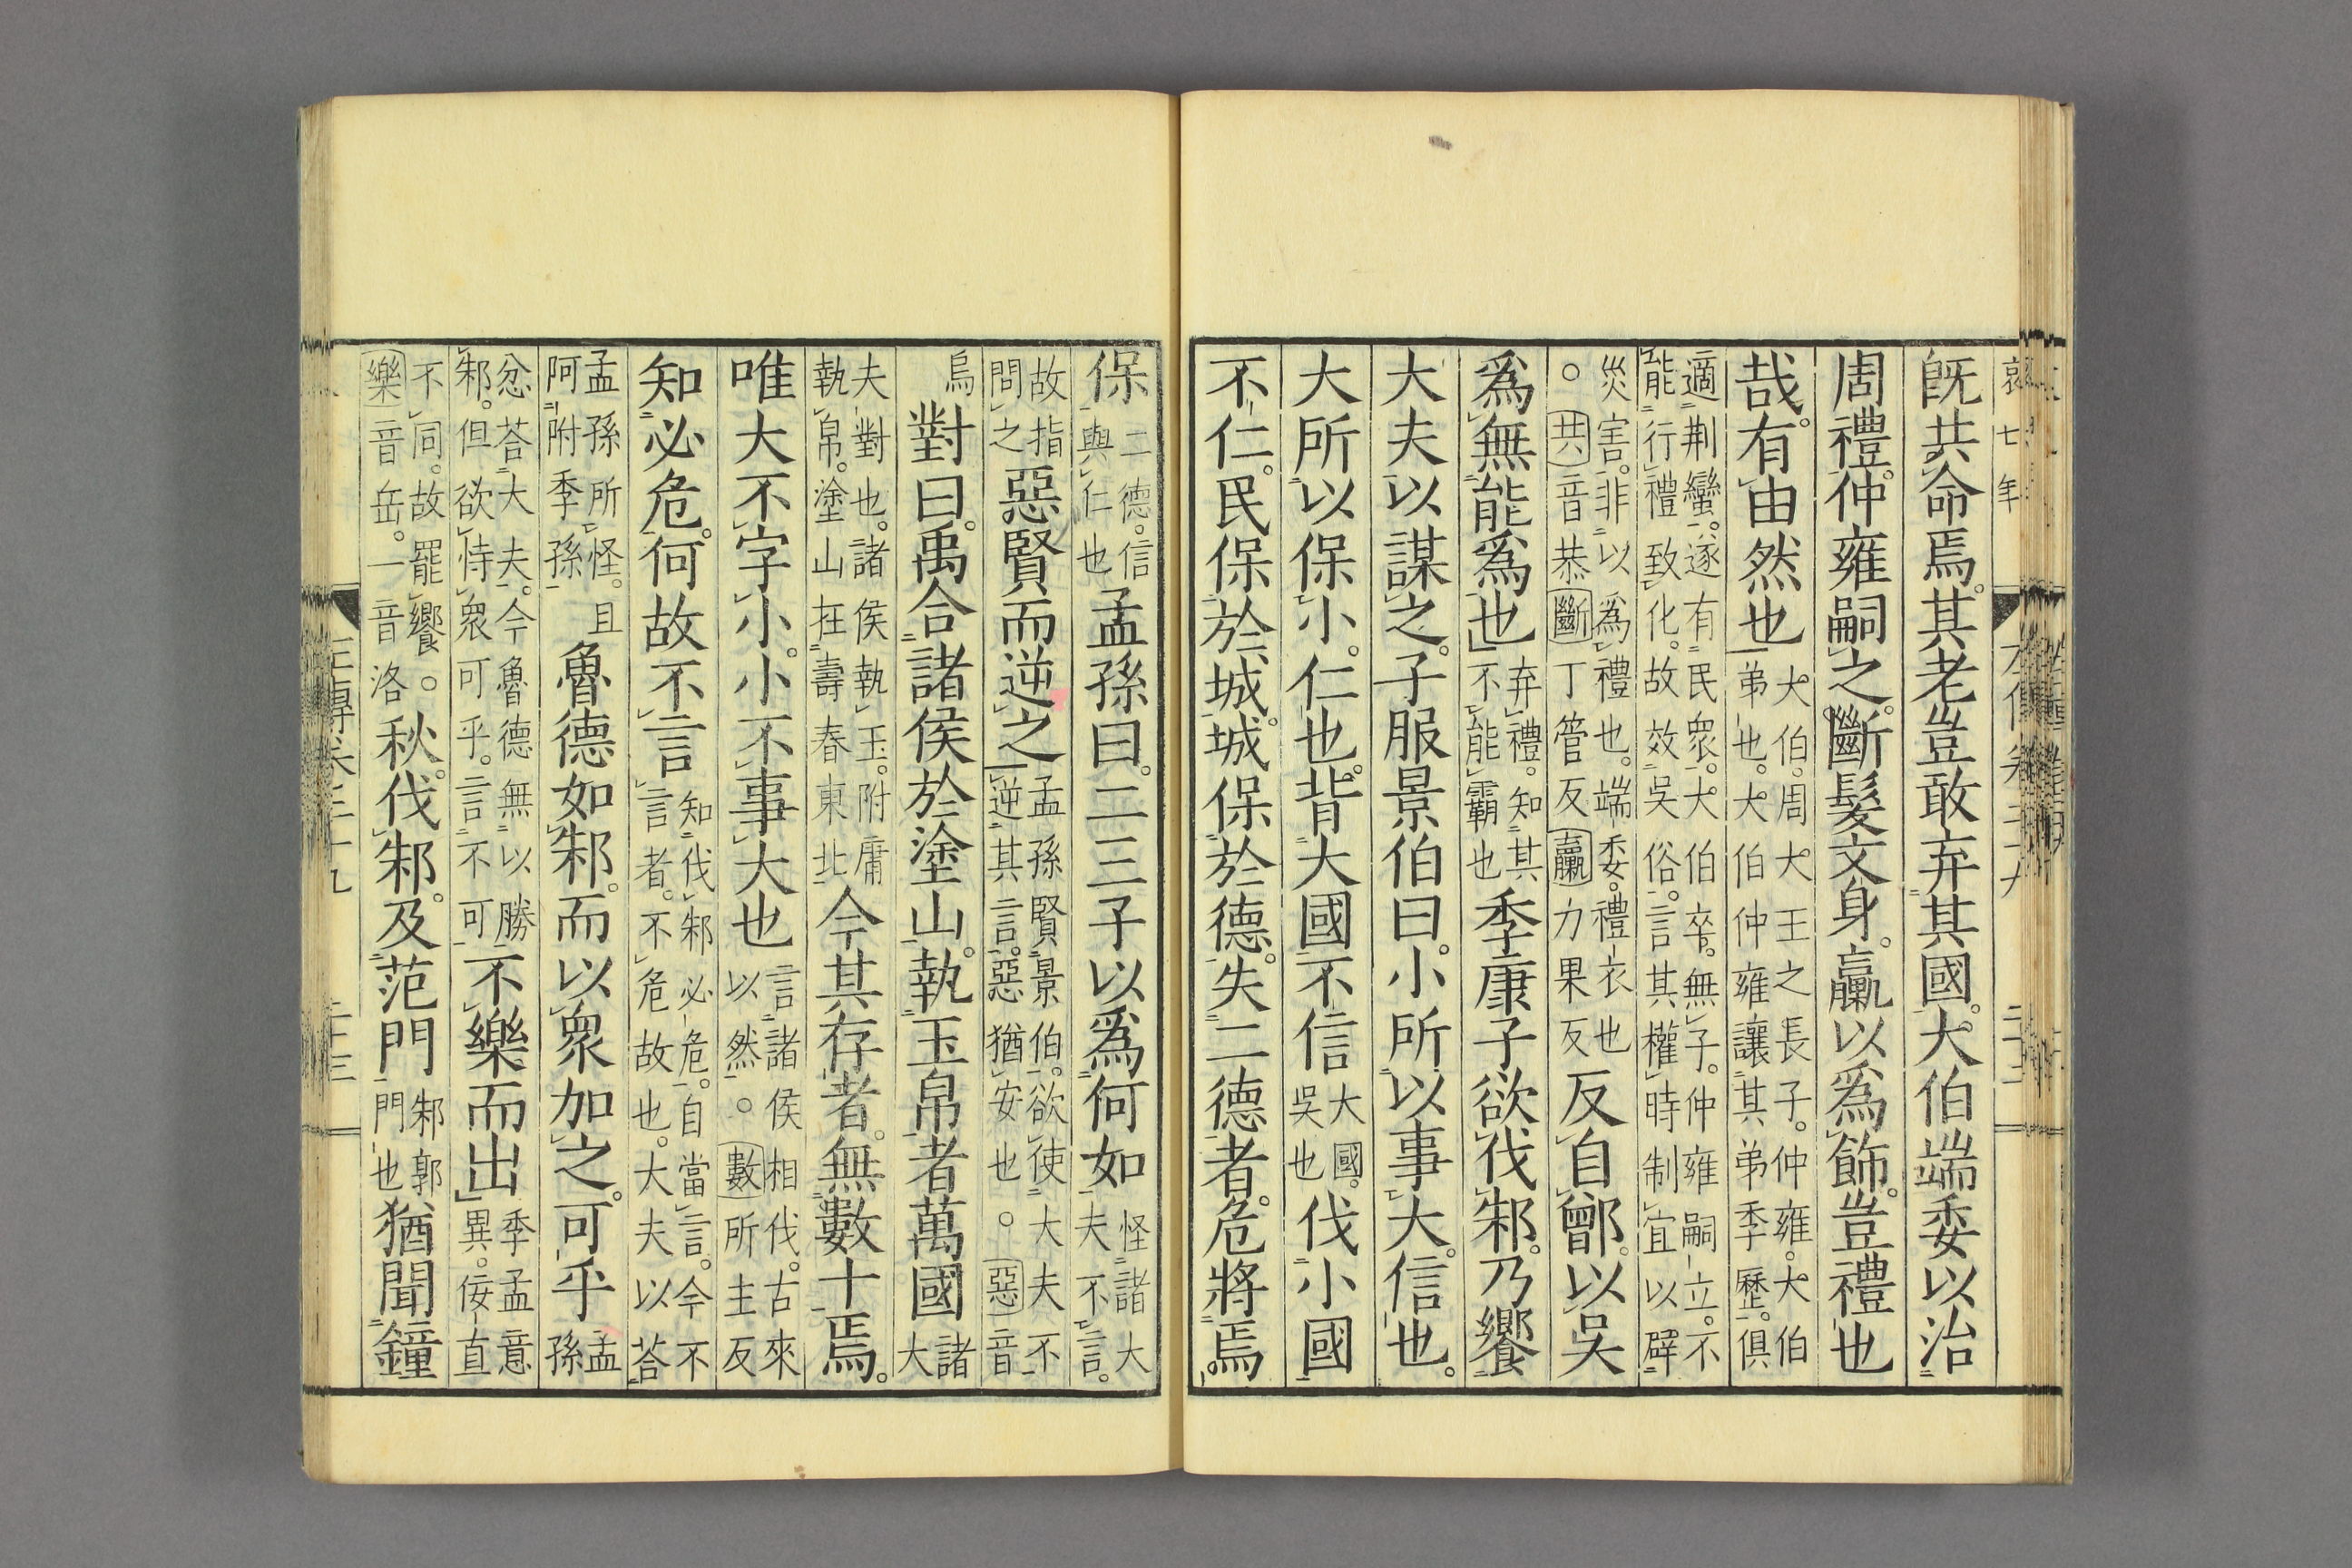 哀七年
既共命焉。其老豈敢弃其國。大伯端委以治
周禮。仲雍嗣之。斷髮文身。臝以爲飾。豈禮也
哉。有由然也大伯。周大王之長子。仲雍。大伯弟也。大伯仲雍讓其弟季歷。俱
適荆蠻。遂有民衆。大伯卒。無子。仲雍嗣立。不能行禮致化。故效吳俗。言其權時制宜以辟
災害。非以爲禮也。端委。禮衣也。共音恭斷丁管反臝力果反反自鄫。以吳
爲無能爲也弃禮。知其不能霸也季康子欲伐邾。乃饗
大夫以謀之。子服景伯曰。小所以事大。信也。
大所以保小。仁也。背大國不信大國。吳也伐小國
不仁。民保於城。城保於德。失二德者。危將焉。
保二德。信與仁也孟孫曰。二三子以爲何如怪諸大夫不言。
故指問之惡賢而逆之孟孫賢景伯。欲使大夫不逆其言。惡猶安也。惡音
烏對曰。禹合諸侯於塗山。執玉帛者萬國諸大
夫對也。諸侯執玉。附庸執帛。塗山在壽春東北今其存者。無數十焉。
唯大不字小。小不事大也言諸侯相伐。古來以然。數所主反
知必危。何故不言知伐邾必危。自當言。今不言者。不危故也。大夫以荅
孟孫所怪。且阿附季孫魯德如邾。而以衆加之。可乎孟孫
忿荅大夫。今魯德無以勝邾。但欲恃衆可乎。言不可不樂而出季孟意異。佞直
不同。故罷饗。樂音岳。一音洛秋。伐邾。及范門邾郭門也猶聞鐘